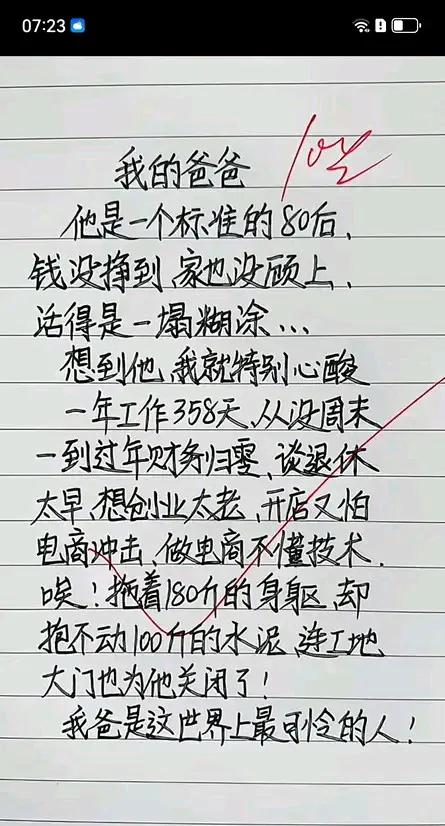 07:23
我的爸爸
他是一个标准的80后、
钱没挣到、家也没顾上、
活得是一塌糊涂...
想到他、我就特别心酸
一年工作358天、从没周末
一到过年财务归零、谈退休
太早、想创业太老、开店又怕
电商冲击、做电商不懂技术、
唉！拖着180斤的身躯、却
抱不动100斤的水泥、连工地
大门也为他关闭了！
我爸是这世界上最可怜的人！